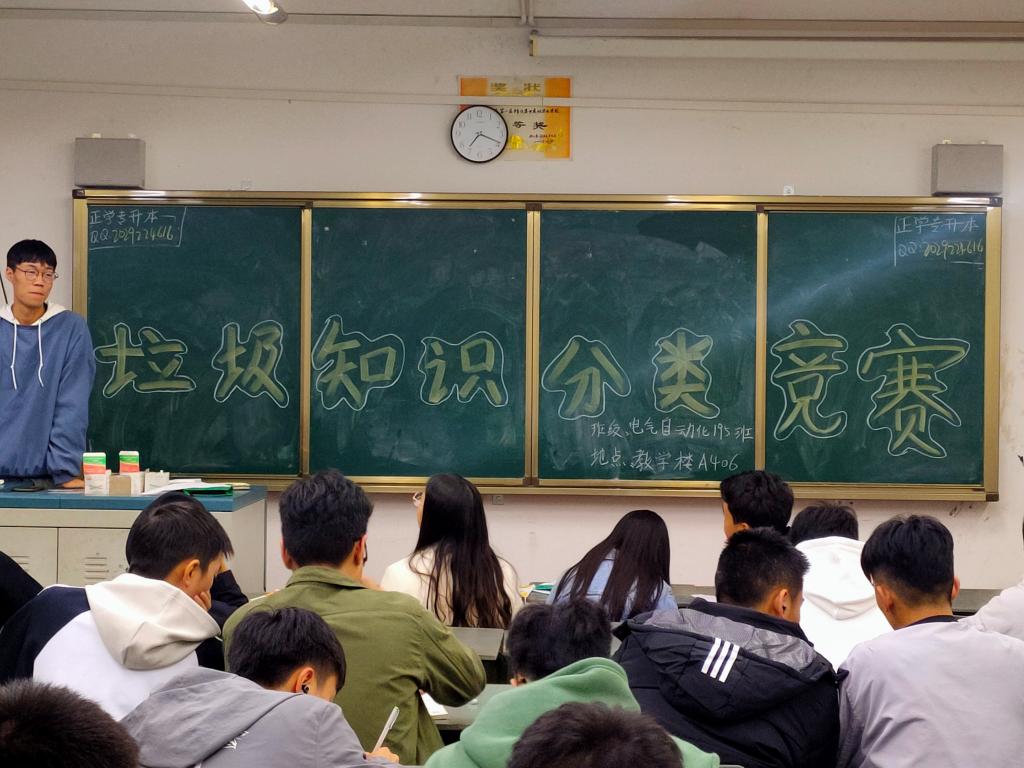 奖状
等奖
正学专升本
QQ:2029224616
正学专升本
QQ:2029224616
垃圾知识分类竞赛
班级、电气自动化195班
地点、教学楼A406